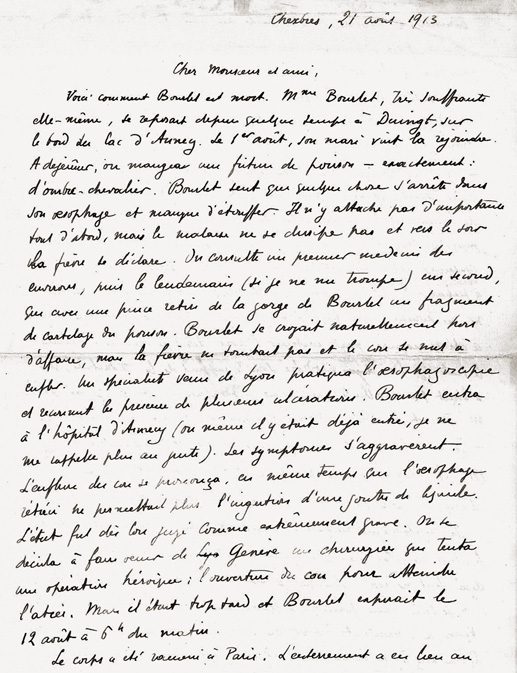 Chexbres, 21 août 1913
Cher Monsieur et ami,
Voici comment Bourlet est mort. Mme Bourlet, très souffrante
elle-même, se reposait depuis quelque temps à Duingt, sur
le bord du lac d'Annecy. Le 1er août, son mari vint la rejoindre.
A déjeûner, on mangeait une friture de poisson – exactement :
d'ombre-chevalier. Bourlet sent que quelque chose s'arrête dans
son œsophage et manque d'étouffer. Il n'y attache pas d'importance
tout d'abord, mais le malaise ne se dissipe pas et vers le soir
la fièvre se déclare. On consulte un premier médecin des
environs, puis le lendemain (si je ne me trompe) un second,
qui avec une pince retire de la gorge de Bourlet un fragment
de cartilage du poisson. Bourlet se croyait naturellement hors
d'affaire, mais la fièvre ne tombait pas et le cou se mit à
enfler. Un spécialiste venu de Lyon pratiqua l'œsophagoscopie
et reconnut la présence de plusieurs ulcérations. Bourlet entra
à l'hôpital d'Annecy (ou même il y était déjà entré, je ne
me rappelle plus au juste). Les symptômes s'aggravèrent.
L'enflure du cou se prononça, en même temps que l'œsophage
rétréci ne permettait plus l'ingestion d'une goutte de liquide.
L'état fut dès lors jugé comme extrêmement grave. On se
décida à faire venir de Genève un chirurgien qui tenta
une opération héroïque : l'ouverture du cou pour atteindre
l'abcès. Mais il était trop tard et Bourlet expirait le
12 août à 6h du matin.
Le corps a été ramené à Paris. L'enterrement a eu lieu au